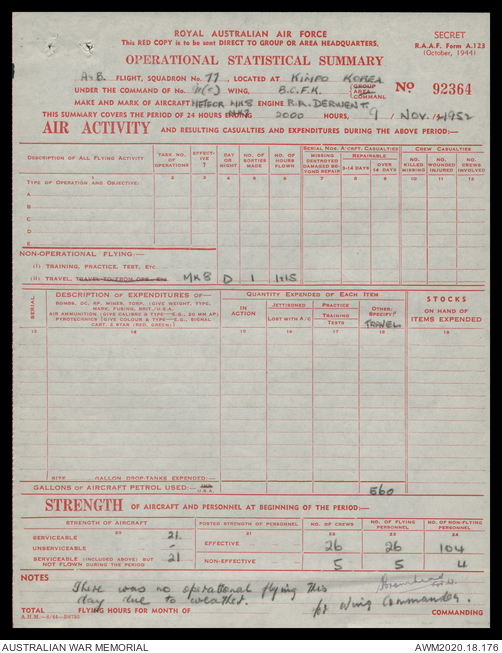 ROYAL AUSTRALIAN AIR FORCE
This RED COPY is to be sent DIRECT TO GROUP OR AREA HEADQUARTERS.
SECRET
R.A.A.F. Form A.123
(October, 1944)
OPERATIONAL STATISTICAL SUMMARY
A&B. FLIGHT, SQUADRON No. 77, LOCATED AT KIMPO KOREA
UNDER THE COMMAND OF No. 91(C) WING, B.C.F.K. GROUP AREA COMMAND
No 92364
MAKE AND MARK OF AIRCRAFT METEOR MK8 ENGINE R.R. DERWENT.
THIS SUMMARY COVERS THE PERIOD OF 24 HOURS ENDING 2000 HOURS, 9 / NOV. / 1952
AIR ACTIVITY AND RESULTING CASUALTIES AND EXPENDITURES DURING THE ABOVE PERIOD:—
DESCRIPTION OF ALL FLYING ACTIVITY
TASK NO. OF OPERATIONS
EFFECTIVE ?
DAY OR NIGHT
NO. OF SORTIES MADE
NO. OF HOURS FLOWN
SERIAL NOS. A/CRAFT. CASUALTIES
MISSING DESTROYED DAMAGED BEYOND REPAIR
REPAIRABLE
3-14 DAYS
OVER 14 DAYS
CREW CASUALTIES
NO. KILLED MISSING
NO. WOUNDED INJURED
NO. CREWS INVOLVED
TYPE OF OPERATION AND OBJECTIVE:—
2 3 4 5 6 7 8 9 10 11 12
A
B
C
D
E
NON-OPERATIONAL FLYING:—
(I) TRAINING, PRACTICE, TEST, ETC.
(II) TRAVEL, TRAVEL TO/FROM OPS. ETC MK8 D 1 1:15
SERIAL
DESCRIPTION OF EXPENDITURES OF—
BOMBS, DC, RP, MINES, TORP. (GIVE WEIGHT, TYPE,
MARK, FUZING, BRIT./U.S.A.
AIR AMMUNITION (GIVE CALIBRE & TYPE—E.G., 20 MM AP)
PYROTECHNICS (GIVE COLOUR & TYPE—E.G., SIGNAL
CART. 2 STAR (RED, GREEN))
QUANTITY EXPENDED OF EACH ITEM
IN ACTION
JETTISONED
LOST WITH A/C
PRACTICE
TRAINING
TESTS
OTHER:
SPECIFY?
TRAVEL
STOCKS
ON HAND OF
ITEMS EXPENDED
13 14 15 16 17 18 19
SIZE GALLON DROP-TANKS EXPENDED:—
GALLONS OF AIRCRAFT PETROL USED:— U.S.A. 560
STRENGTH OF AIRCRAFT AND PERSONNEL AT BEGINNING OF THE PERIOD:—
STRENGTH OF AIRCRAFT
POSTED STRENGTH OF PERSONNEL
NO. OF CREWS
NO. OF FLYING PERSONNEL
NO. OF NON-FLYING PERSONNEL
20 21 22 23 24
SERVICEABLE 21.
UNSERVICEABLE -
EFFECTIVE 26 26 104
SERVICEABLE (INCLUDED ABOVE) BUT NOT FLOWN DURING THE PERIOD 21
NON-EFFECTIVE 5 5 4
NOTES There was no operational flying this
day due to weather.
for Wing Commander.
TOTAL FLYING HOURS FOR MONTH OF COMMANDING
AUSTRALIAN WAR MEMORIAL
AWM2020.18.176